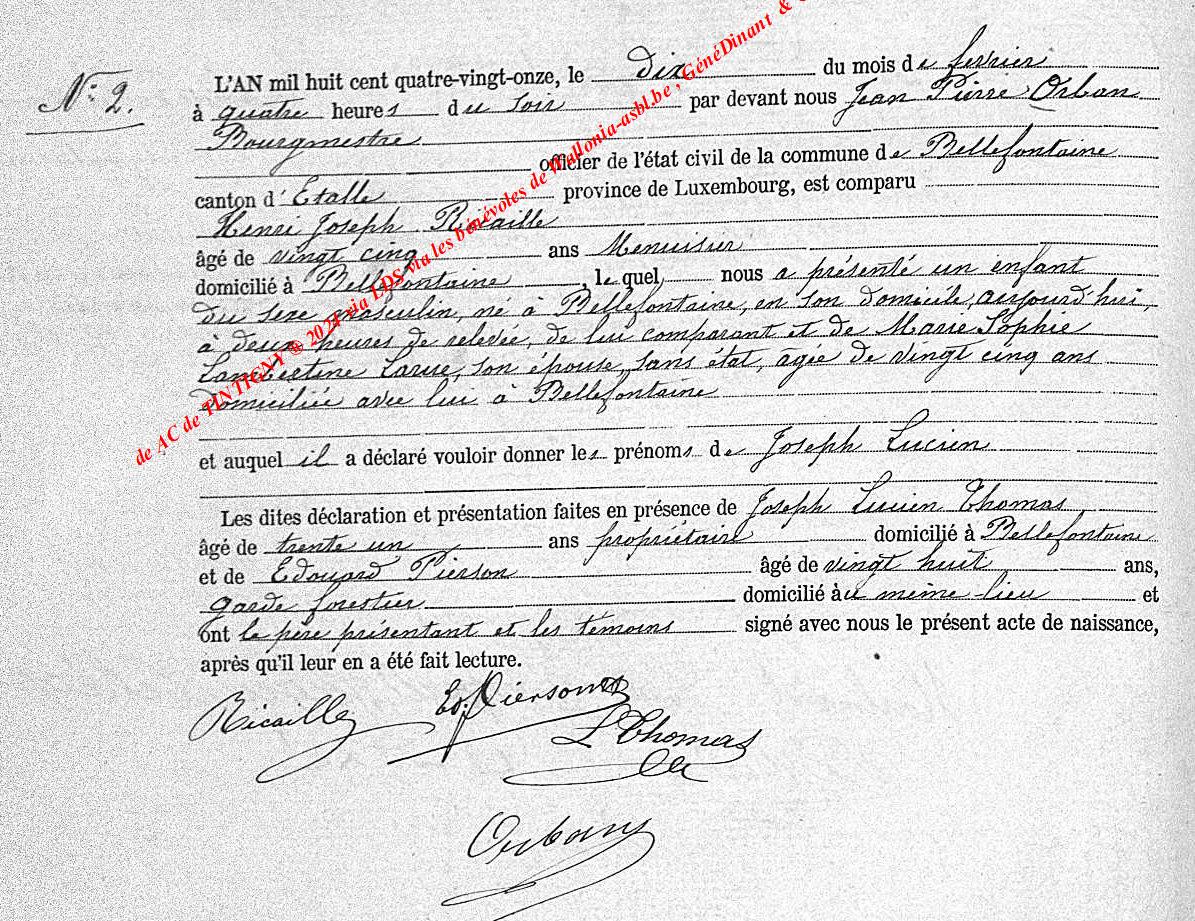 N° 2.
L'AN mil huit cent quatre-vingt-onze, le dix du mois de février
à quatre heures du soir par devant nous Jean Pierre Orban
Bourgmestre
officier de l'état civil de la commune de Bellefontaine
canton d'Etalle province de Luxembourg, est comparu
Henri Joseph Ricaille
âgé de vingt cinq ans Menuisier
domicilié à Bellefontaine, lequel nous a présenté un enfant
du sexe masculin, né à Bellefontaine, en son domicile, aujourd'hui,
à deux heures de relevée, de lui comparant et de Marie Sophie
Lambertine Larue, son épouse, sans état, âgée de vingt cinq ans
domiciliée avec lui à Bellefontaine
et auquel il a déclaré vouloir donner les prénoms de Joseph Lucien
Les dites déclaration et présentation faites en présence de Joseph Lucien Thomas
âgé de trente un ans propriétaire domicilié à Bellefontaine
et de Edouard Pierson âgé de vingt huit ans,
garde forestier domicilié au même lieu et
ont le père présentant et les témoins signé avec nous le présent acte de naissance,
après qu'il leur en a été fait lecture.
Ricaille Ed. Pierson
L Thomas
Orban
de AC de TINTIGNY ® 2024 via LDS via les bénévoles de Wallonia-asbl.be, GénéDinant &